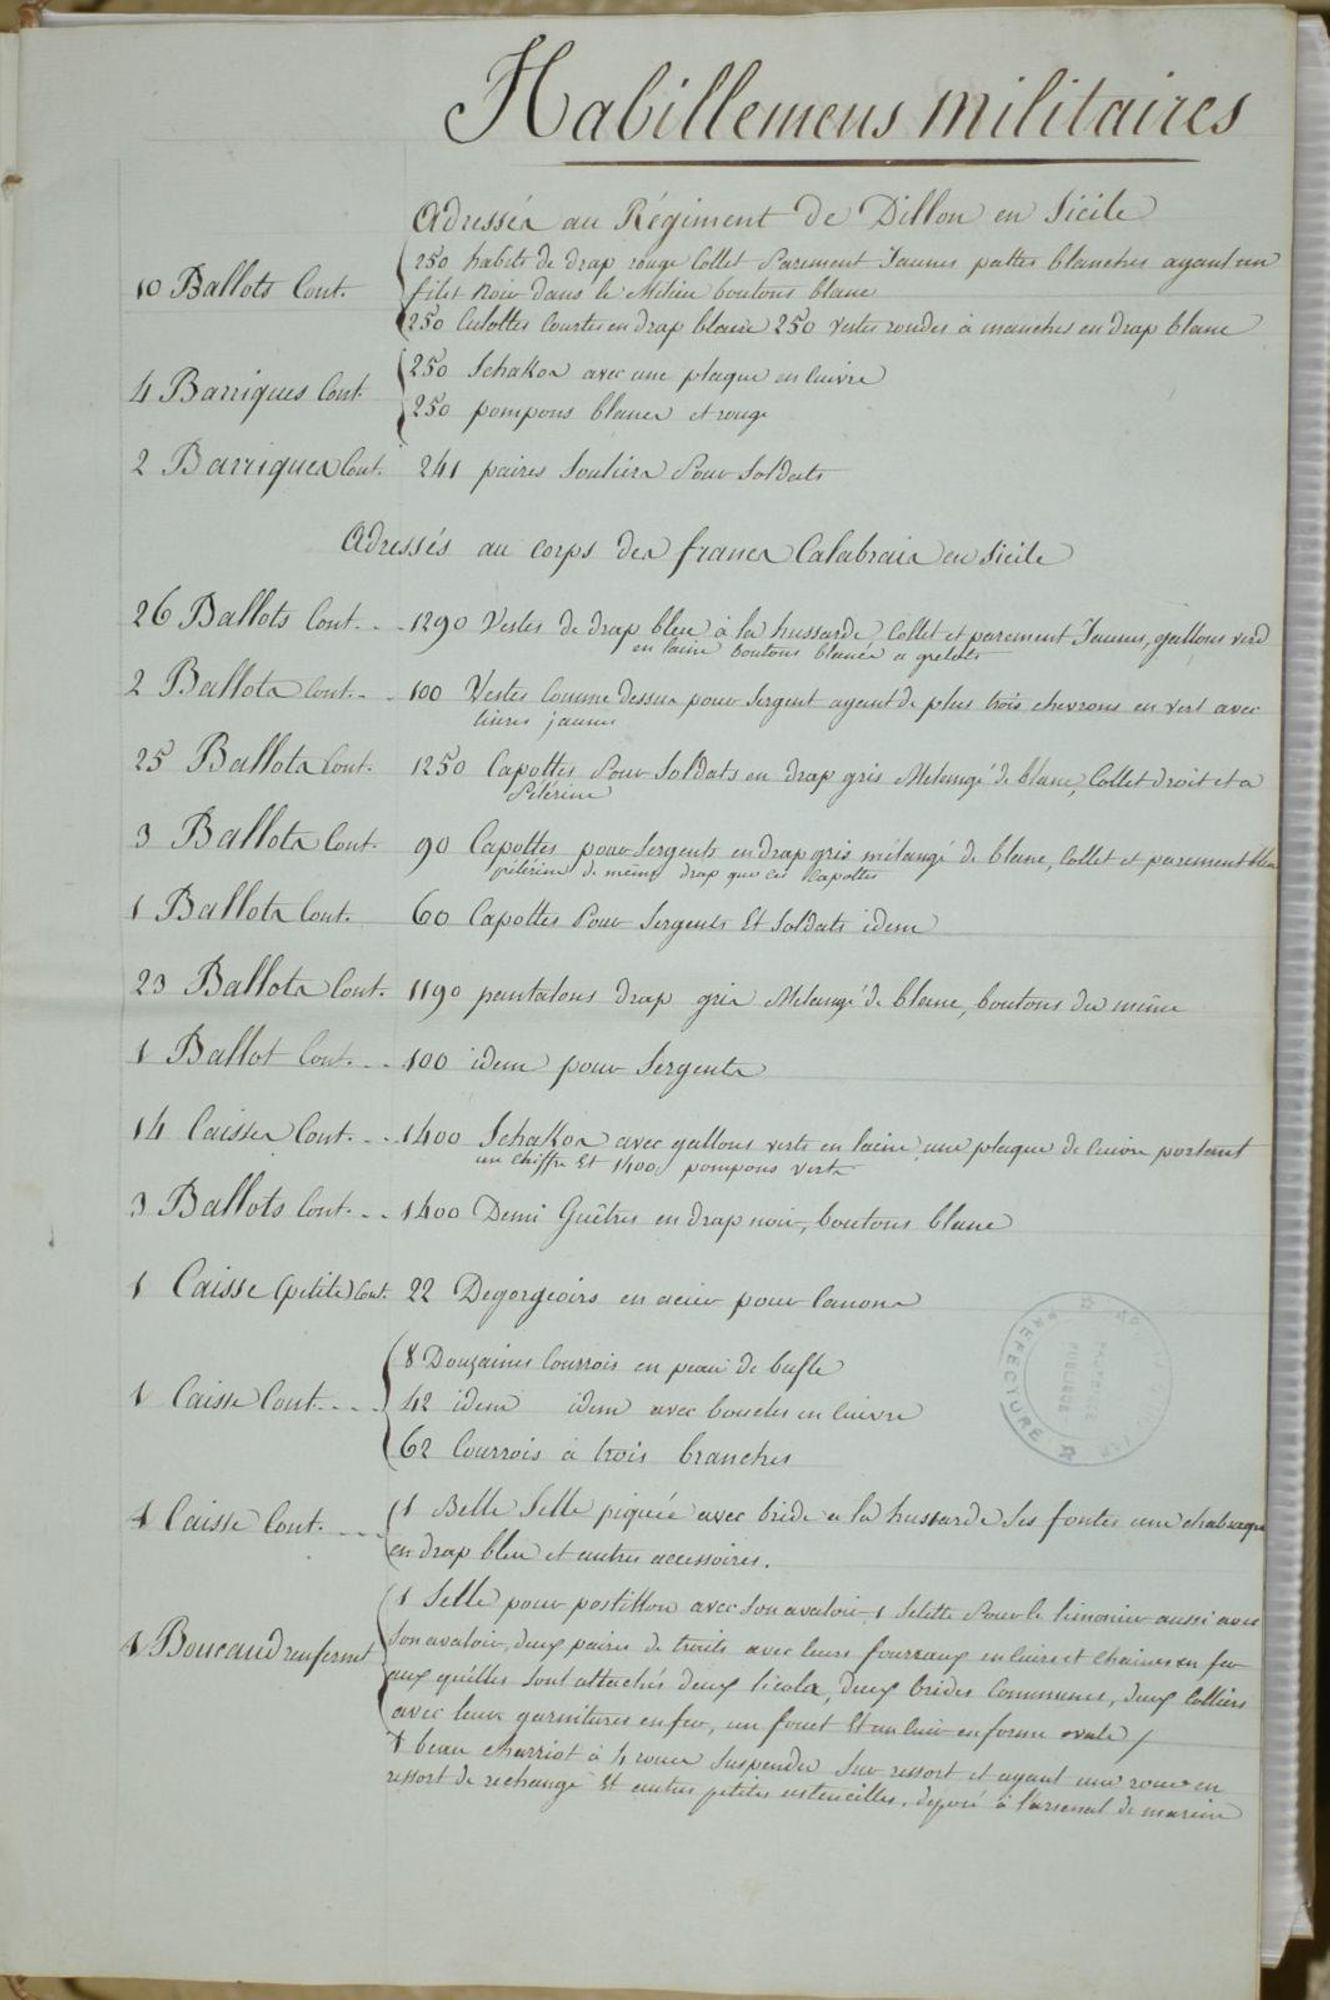 Habillemens militaires
Adressés au Régiment de Dillon en Sicile
10 Ballots Cont. 250 habits de drap rouge Collet Parement Jaunes pattes blanches ayant un
filet noir dans le Milieu boutons blanc
250 Culottes Courtes en drap blanc 250 vestes rondes à manches en drap blanc
4 Barriques Cont. 250 Schakos avec une plaque en cuivre
250 pompons blancs et rouge
2 Barriques Cont. 241 paires Souliers Pour Soldats
Adressés au corps des francs Calabrais en Sicile
26 Ballots Cont. . . 1290 Vestes de drap bleu à la hussarde, Collet et parement Jaunes, gallons verd
en laine boutons blancs a grelots
2 Ballots Cont. . . 100 Vestes Comme dessus pour Sergent ayant de plus trois chevrons en vert avec
lisières jaunes
25 Ballots Cont. 1250 Capottes Pour Soldats en drap gris Melangé de blanc, Collet droit et a
Pélérine
3 Ballots Cont. 90 Capottes pour Sergents en drap gris mélangé de blanc, Collet et parement bleu
pélérine de même drap que les Capottes
1 Ballots Cont. 60 Capottes Pour Sergents Et Soldats idem
23 Ballots Cont. 1190 pantalons drap gris Melangé de blanc, boutons du même
1 Ballot Cont. . . 100 idem pour Sergents
14 Caisses Cont. . . 1400 Schakos avec gallons verts en laine une plaque de cuivre portant
un chiffre Et 1400 pompons verts
3 Ballots Cont. . . 1400 Demi Guêtres en drap noir, boutons blanc
1 Caisse (petite) Cont. 22 Degorgeoirs en acier pour Canons
1 Caisse Cont. . . . 8 Douzaines Courrois en peau de bufle
42 idem idem avec boucles en cuivre
62 Courrois à trois branches
1 Caisse Cont. . . . 1 Belle Selle piquée avec bride a la hussarde Ses fontes une chabraque
en drap bleu et autres accessoires.
1 Boucaud renfermt 1 Selle pour postillon avec Son avaloir, 1 Selette Pour le limonier aussi avec
Son avaloir, deux paires de traits avec leurs fourreaux en cuirs et chaines en fer
aux quelles Sont attachés deux licols, deux brides Communes, deux Colliers
avec leurs garnitures en fer, un fouet Et un cuir en forme ovale /
1 beau charriot à 4 roues Suspendu Sur ressort et ayant une roue en
ressort de rechange Et autres petites ustencilles, déposé à l'arsenal de marine
PREFECTURE